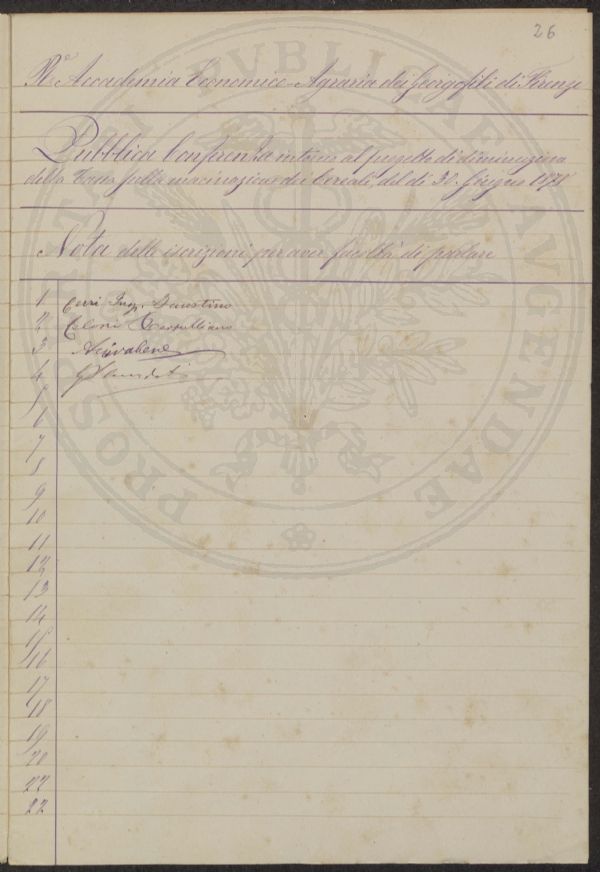 26
R.ª Accademia Economico-Agraria dei Georgofili di Firenze
Pubblica Conferenza intorno al progetto di diminuzione
della Tassa sulla macinazione dei Cereali, del dì 30. Giugno 1878
Nota delle iscrizioni per aver facoltà di parlare
1 Cerri Ing. Faustino
2 Celoni
3
4
5
6
7
8
9
10
11
12
13
14
15
16
17
18
19
20
22
22
PROSPERITATI PUBLICAE AUGENDAE